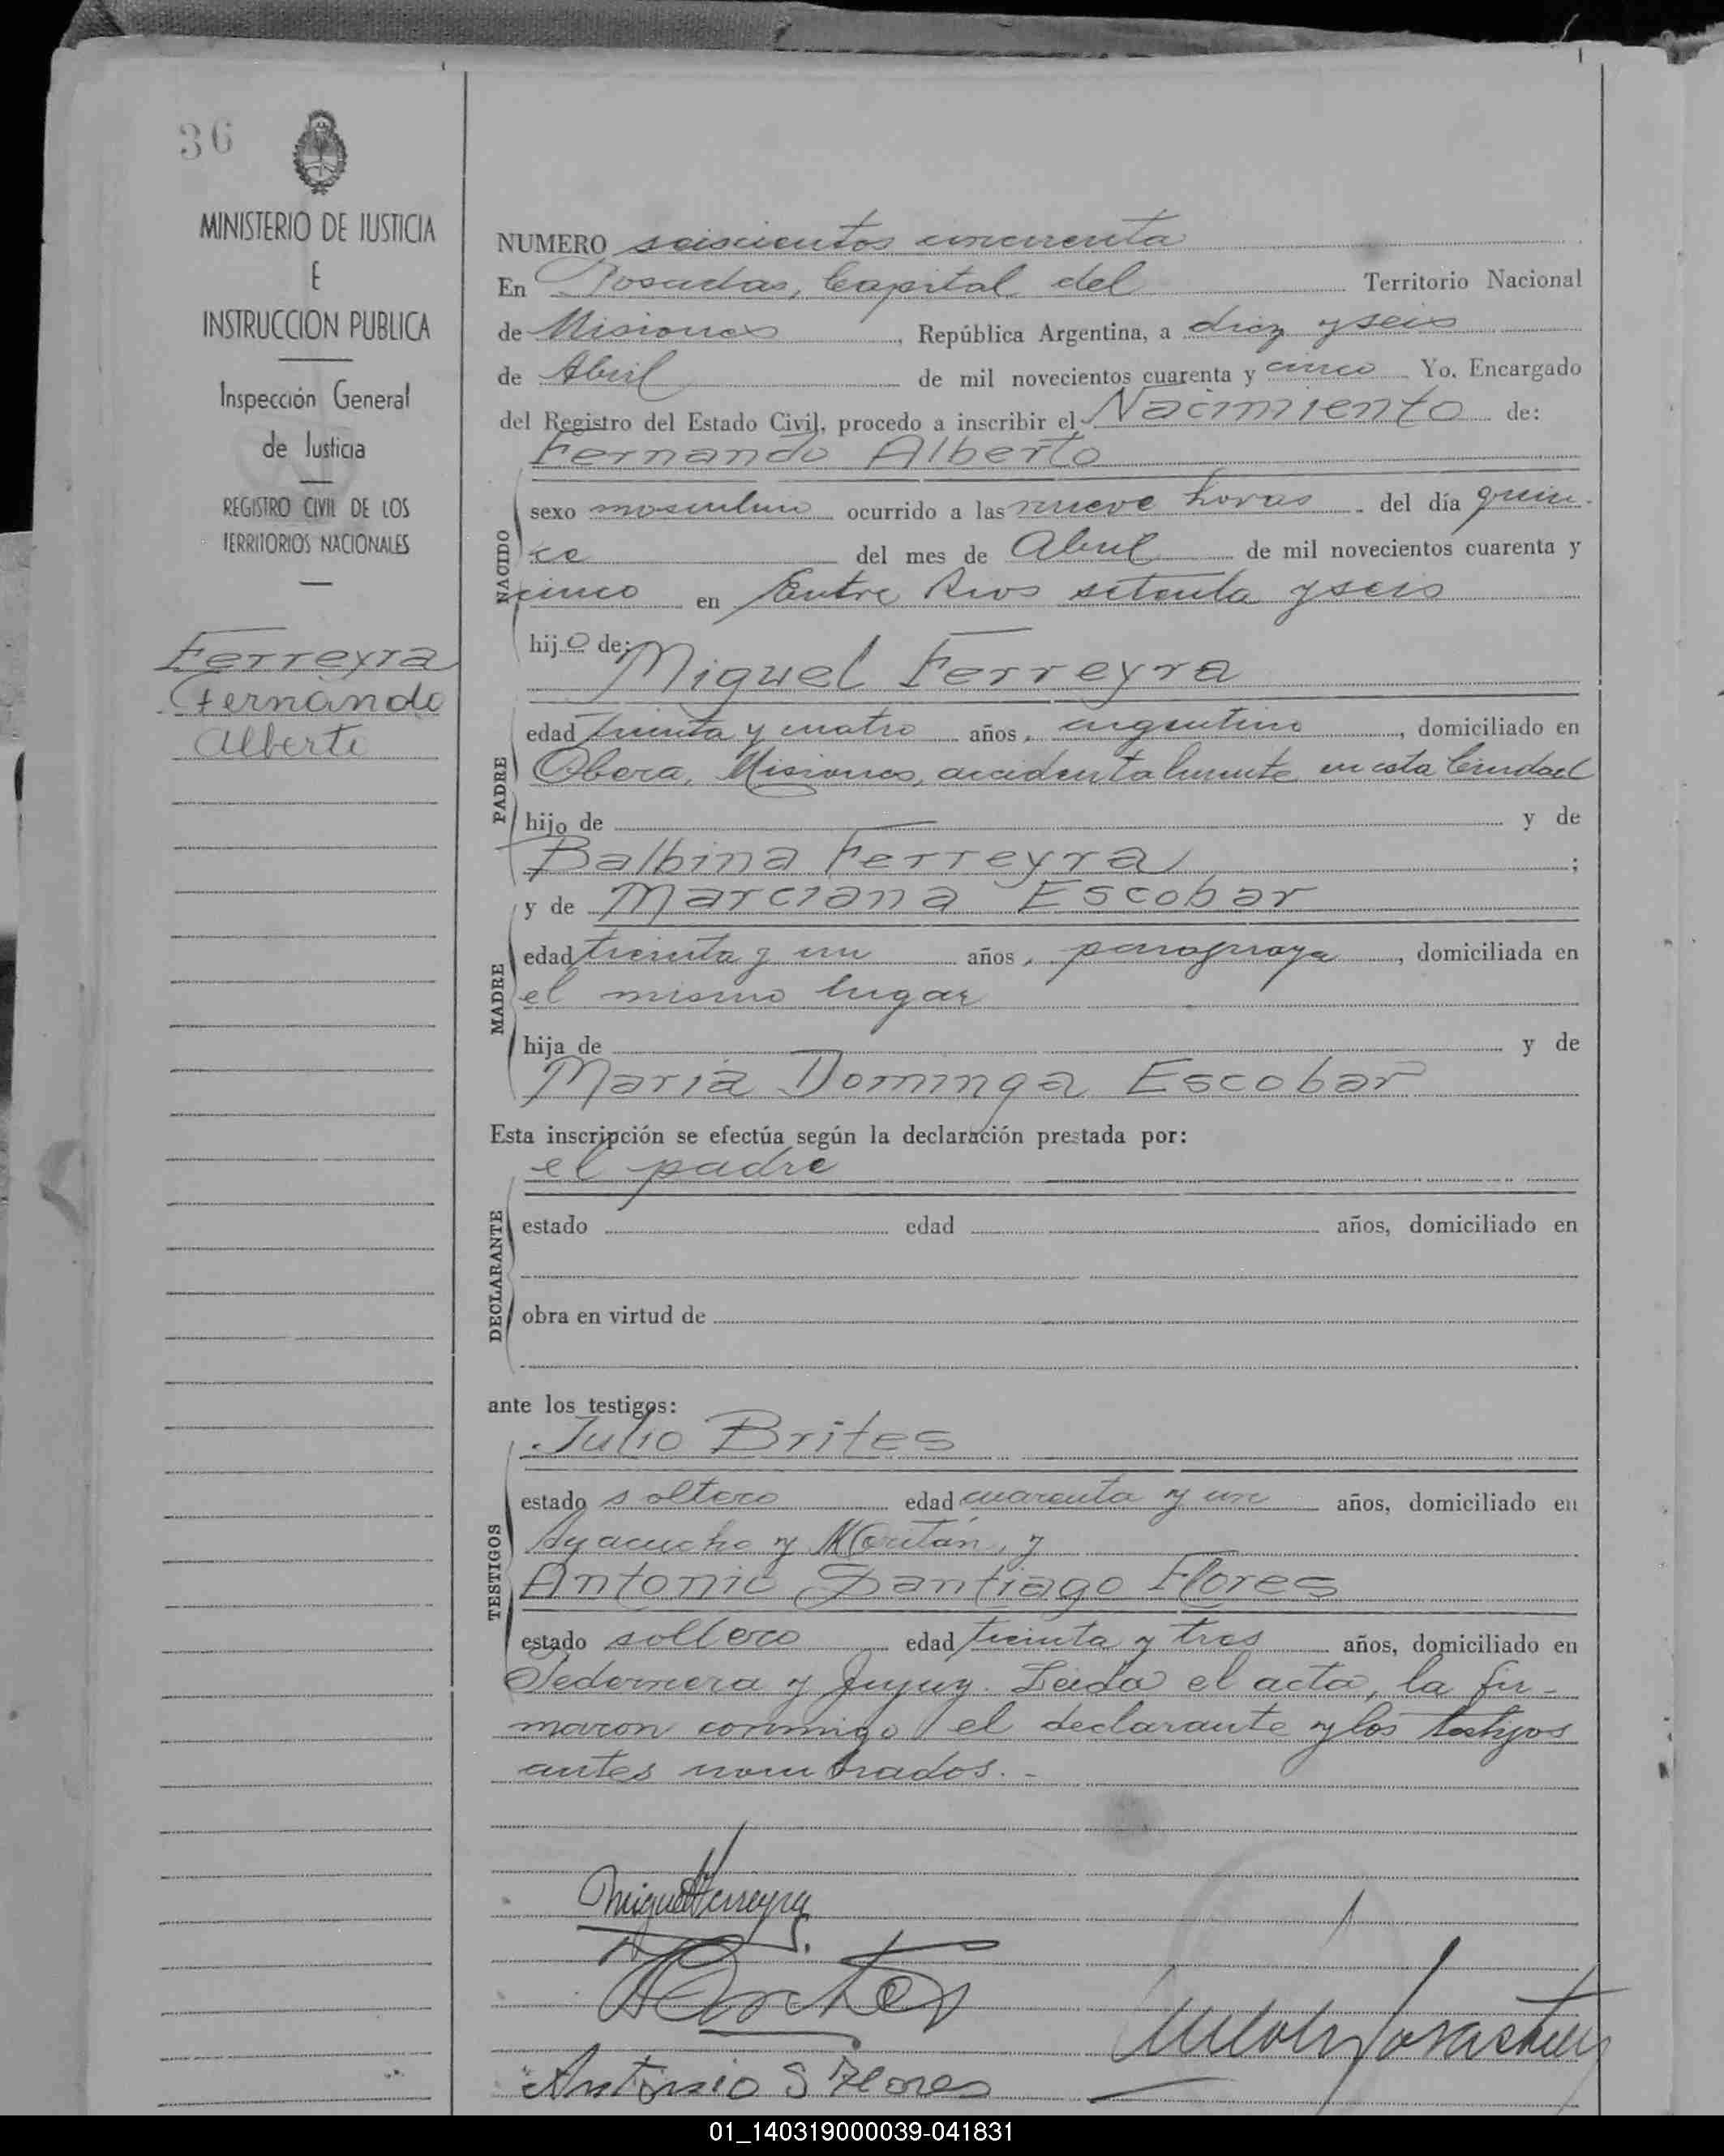 36
MINISTERIO DE JUSTICIA
E
INSTRUCCION PUBLICA
Inspección General
de Justicia
REGISTRO CIVIL DE LOS
TERRITORIOS NACIONALES
Ferreyra
Fernando
Alberto
NUMERO seiscientos cincuenta
En Posadas, Capital del Territorio Nacional
de Misiones, República Argentina, a diez y seis
de Abril de mil novecientos cuarenta y cinco Yo, Encargado
del Registro del Estado Civil, procedo a inscribir el Nacimiento de:
Fernando Alberto
NACIDO
sexo masculino ocurrido a las nueve horas del día quin-
ce del mes de Abril de mil novecientos cuarenta y
cinco en Entre Rios setenta y seis
hijo de:
Miguel Ferreyra
PADRE
edad treinta y cuatro años, argentino, domiciliado en
Obera, Misiones, accidentalmente en esta Ciudad
hijo de y de
Balbina Ferreyra;
y de Marciana Escobar
MADRE
edad treinta y un años, paraguaya, domiciliada en
el mismo lugar
hija de y de
Maria Dominga Escobar
Esta inscripción se efectúa según la declaración prestada por:
el padre
DECLARANTE
estado edad años, domiciliado en
obra en virtud de
ante los testigos:
Julio Brites
TESTIGOS
estado soltero edad cuarenta y un años, domiciliado en
Ayacucho y y
Antonio Santiago Flores
estado soltero edad treinta y tres años, domiciliado en
y Jujuy. Leida el acta, la fir-
maron conmigo el declarante y los testigos
antes nombrados.-
Miguel Ferreyra
Antonio S Flores
01_140319000039-041831